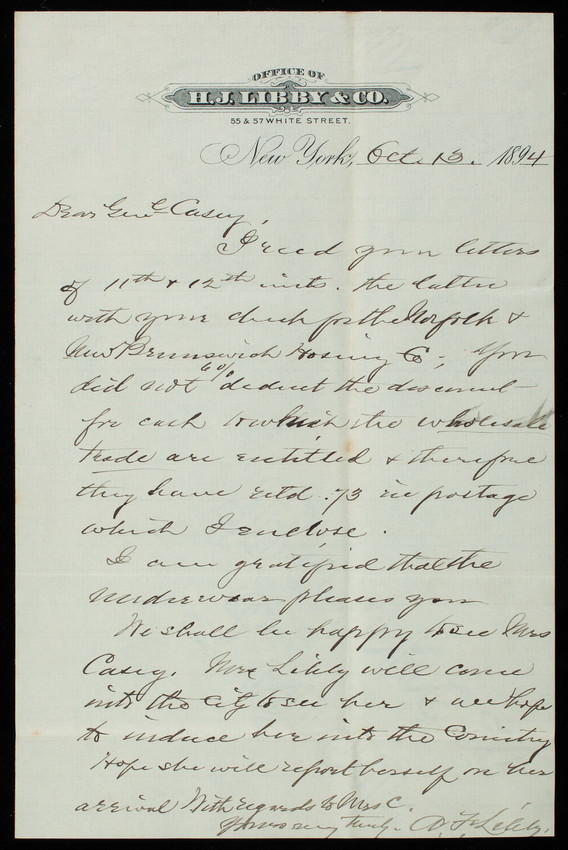 OFFICE OF
H. J. LIBBY & CO.
55 & 57 WHITE STREET.
New York, Oct. 13. 1894
Dear Genl Casey,
I recd your letters
of 11th & 12th insts. the latter
with your check for the Norfolk &
New Brunswick Hosiery Co; You
did not 6% deduct the discount
for cash to which the wholesale
trade are entitled & therefore
they have retd .73 in postage
which I enclose.
I am gratified that the
underwear pleases you
We shall be happy to see Mrs
Casey. Mrs Libby will come
into the City to see her & we hope
to induce her into the Country
Hope she will report herself on her
arrival With regards to Mrs C.
Yours very truly. A. F. Libby.